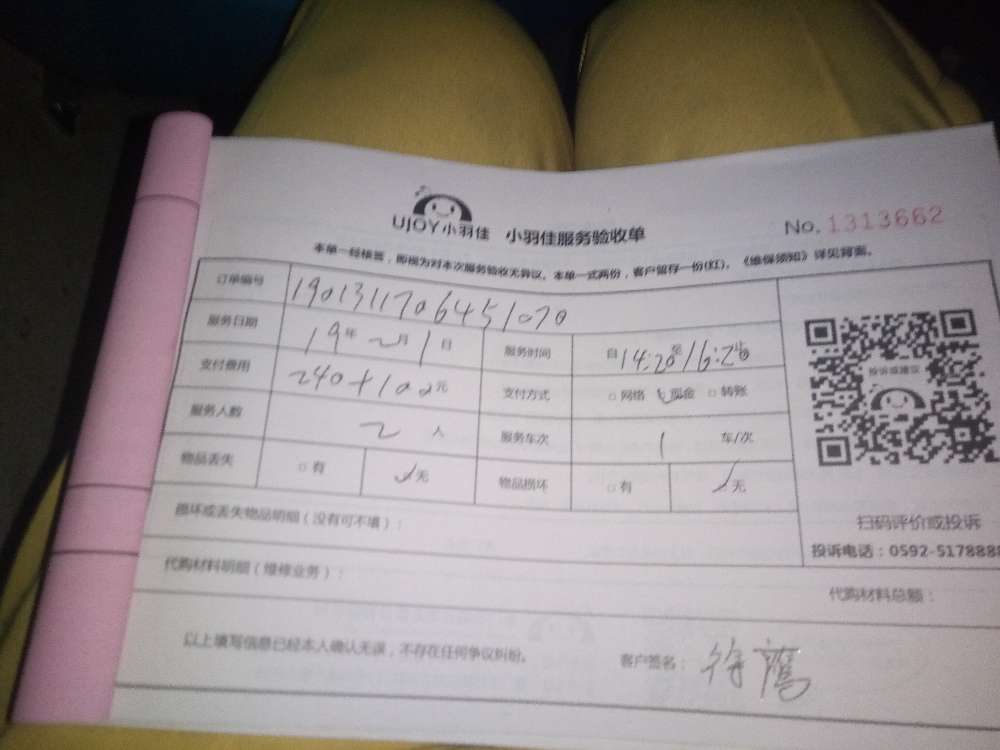 UJOY小羽佳 小羽佳服务验收单
No. 1313662
本单一经核签，即视为对本次服务验收无异议。本单一式两份，客户留存一份(红)。《维保须知》详见背面。
订单编号 1901311706451070
服务日期 19年 2月 1日 服务时间 自14:20至16:20止
支付费用 240+100元 支付方式 □网络 ✓现金 □转账
服务人数 2 人 服务车次 1 车/次
物品丢失 □有 ✓无 物品损坏 □有 ✓无
投诉或建议
损坏或丢失物品明细（没有可不填）：
扫码评价或投诉
投诉电话：0592-5178888
代购材料明细（维修业务）：
代购材料总额：
以上填写信息已经本人确认无误，不存在任何争议纠纷。
客户签名：徐